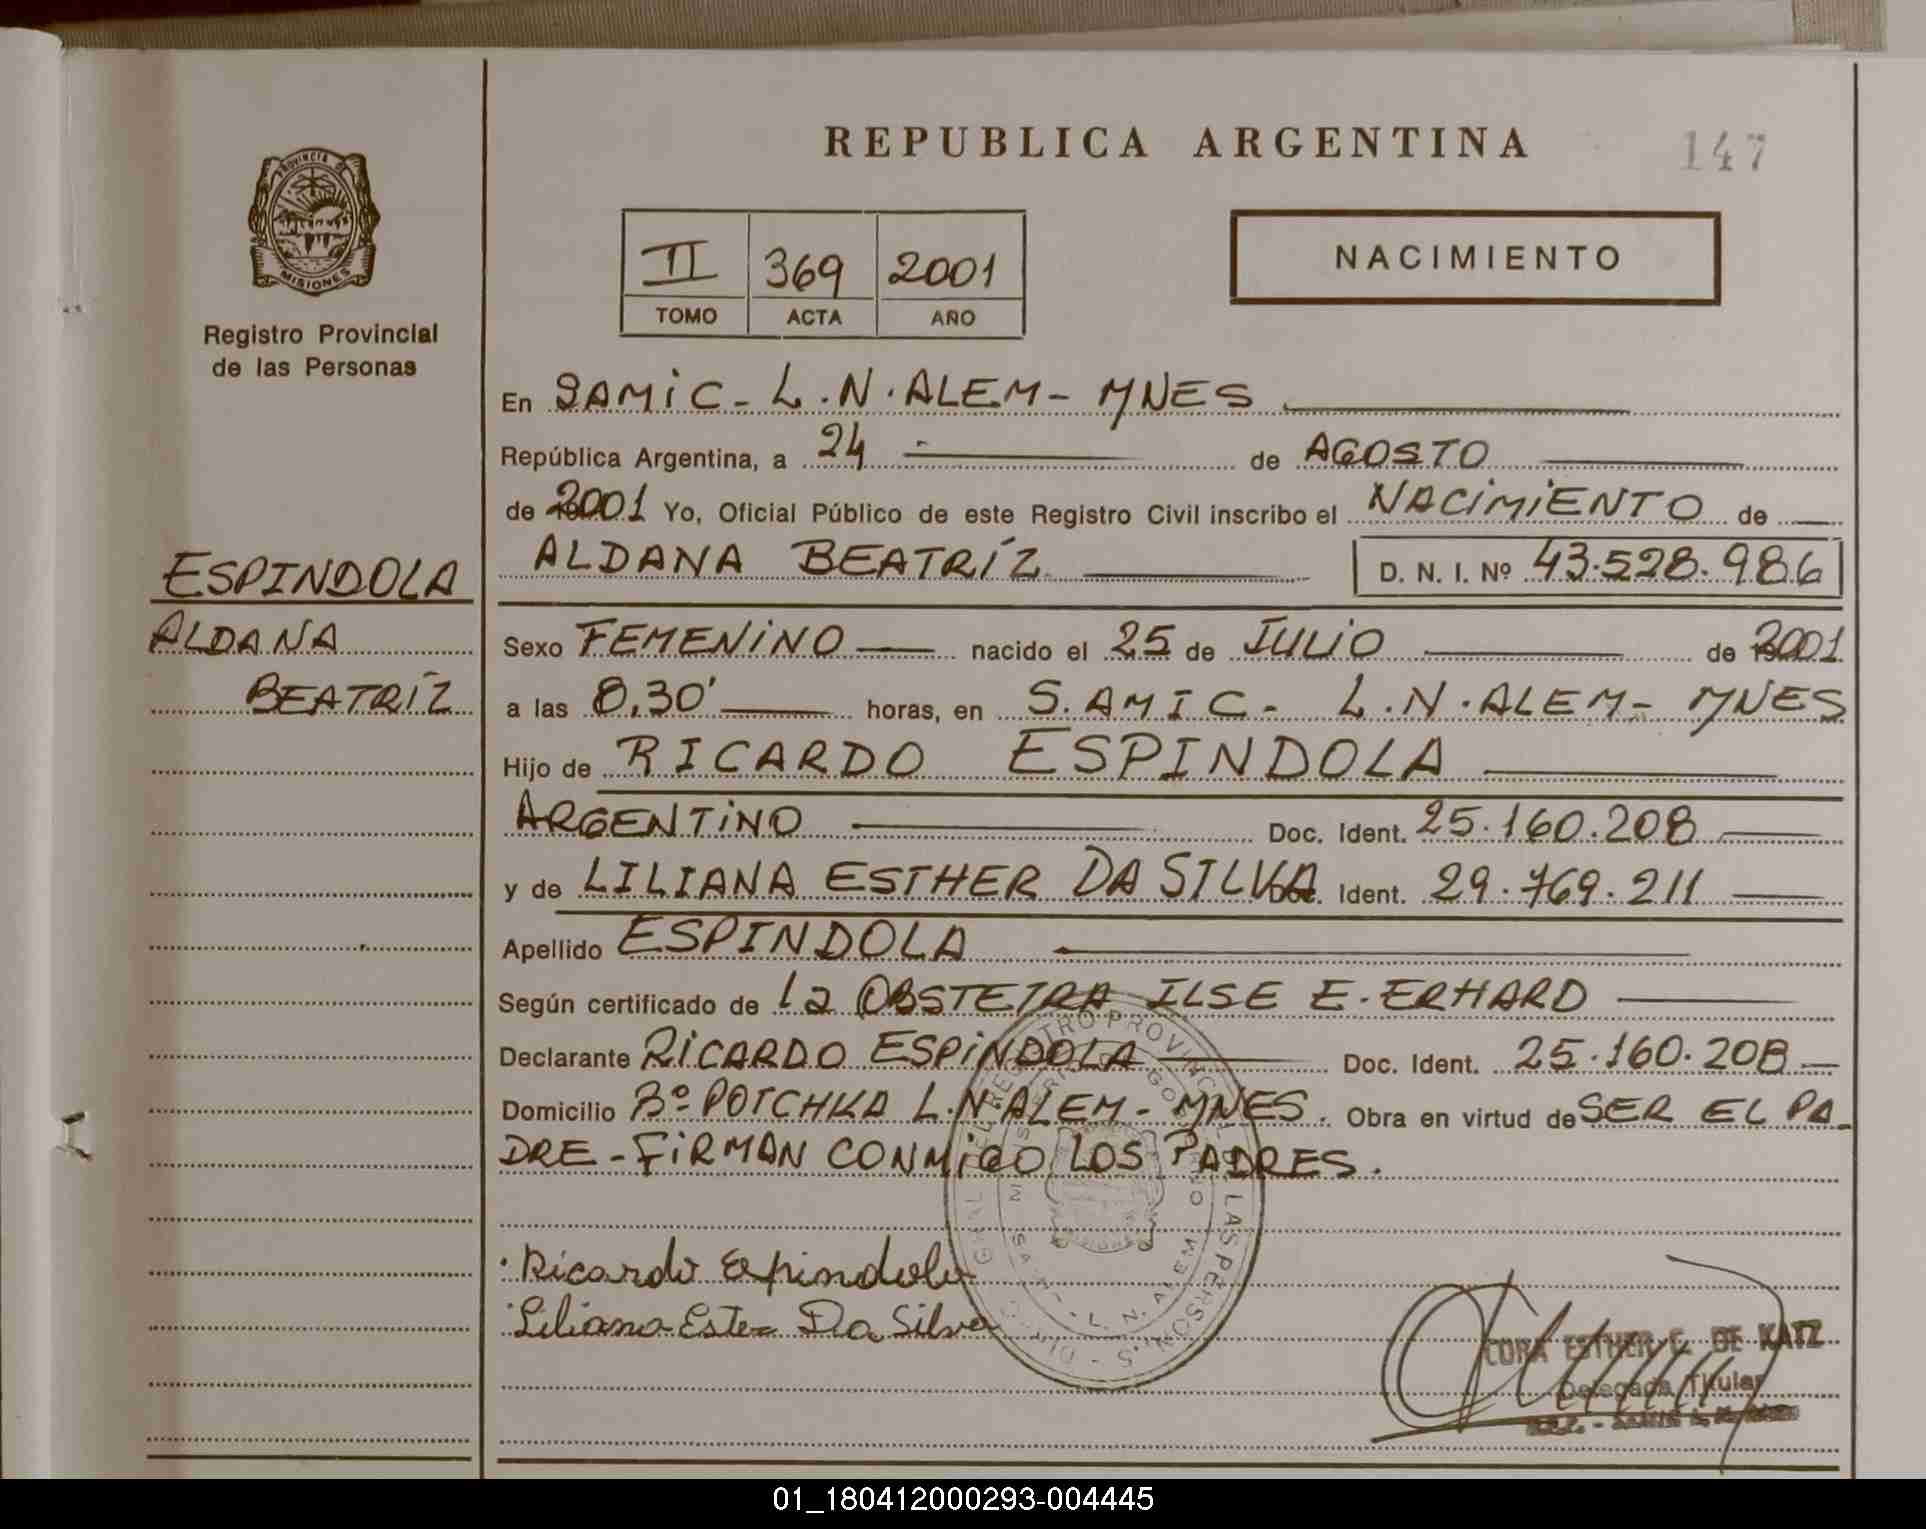 REPUBLICA ARGENTINA
147
PROVINCIA DE
MISIONES
Registro Provincial
de las Personas
II 369 2001
TOMO ACTA AÑO
NACIMIENTO
En SAMIC - L.N. ALEM - MNES
República Argentina, a 24 de AGOSTO
de 2001 Yo, Oficial Público de este Registro Civil inscribo el NACIMIENTO de
ALDANA BEATRÍZ D. N. I. Nº 43.528.986
ESPINDOLA
ALDANA
BEATRÍZ
Sexo FEMENINO nacido el 25 de JULIO de 2001
a las 8,30' horas, en S.AMIC - L.N. ALEM - MNES
Hijo de RICARDO ESPINDOLA
ARGENTINO Doc. Ident. 25.160.208
y de LILIANA ESTHER DA SILVA Doc. Ident. 29.769.211
Apellido ESPINDOLA
Según certificado de la OBSTETRA ILSE E. ERHARD
Declarante RICARDO ESPINDOLA Doc. Ident. 25.160.208
Domicilio Bº POTCHKA L.N. ALEM - MNES. Obra en virtud de SER EL PA-
DRE - FIRMAN CONMIGO LOS PADRES.
REGISTRO PROVINCIAL DE LAS PERSONAS
L. N. ALEM
MISIONES
Ricardo Espindola
Liliana Ester Da Silva
CORA ESTHER C. DE KATZ
Delegada Titular
01_180412000293-004445